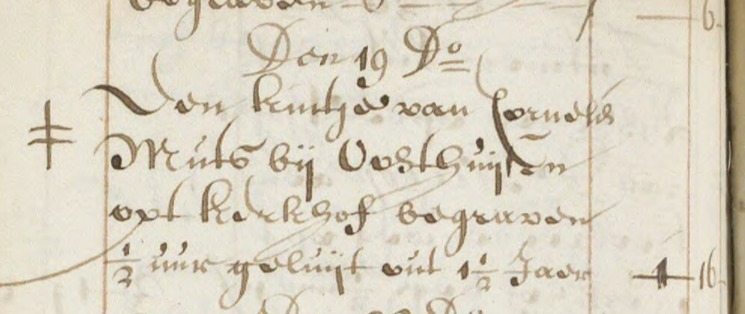 begraven 6
Den 19 Do
Een kintje van Cornelis
Muts bij Oosthuijsen
opt kerkhof begraven
½ uur geluijt out 1½ Jaer 1 16